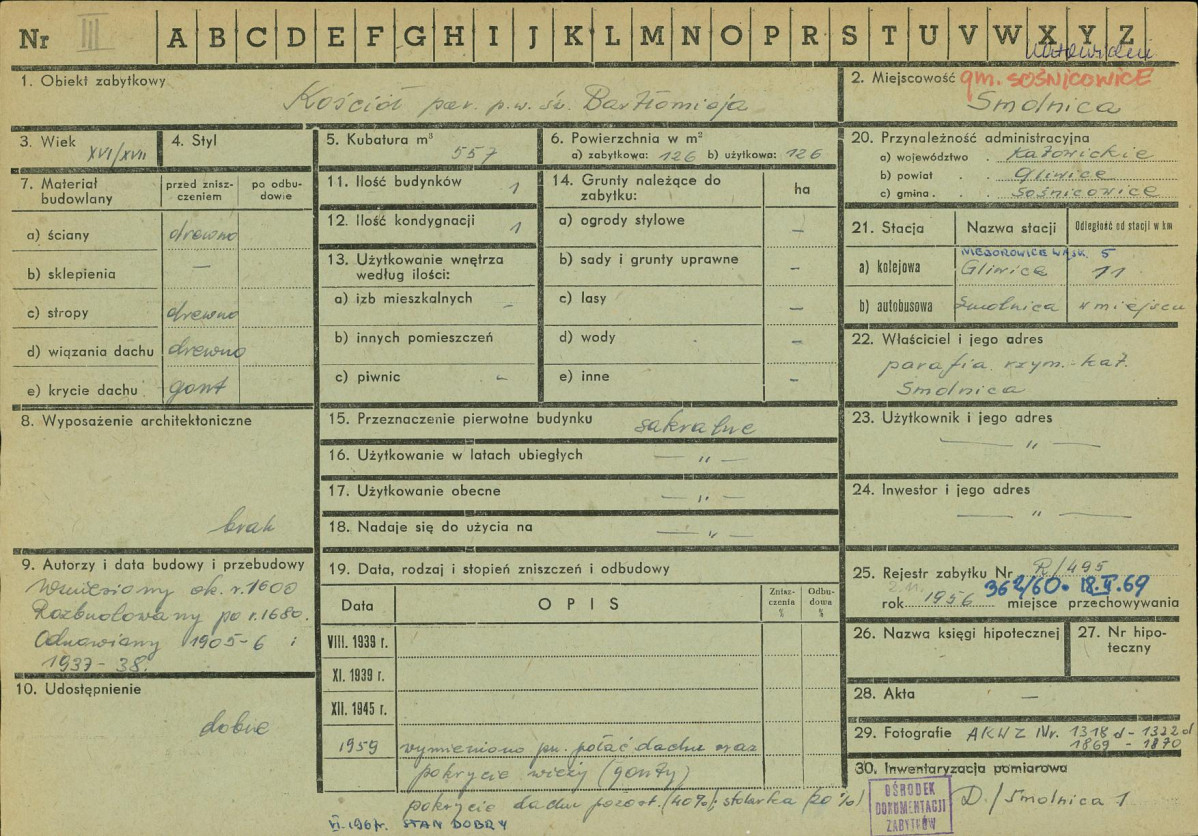 Nr III A B C D E F G H I J K L M N O P R S T U V W X Y Z
1. Obiekt zabytkowy
Kościół par. p.w. św. Bartłomieja
2. Miejscowość gm. SOŚNICOWICE
Smolnica
3. Wiek XVI/XVII
4. Styl
5. Kubatura m³ 557
6. Powierzchnia w m²
a) zabytkowa: 126 b) użytkowa: 126
20. Przynależność administracyjna
a) województwo . katowickie
b) powiat . . Gliwice
c) gmina . Sośnicowice
7. Materiał budowlany
przed zniszczeniem
po odbudowie
a) ściany drewno
b) sklepienia —
c) stropy drewno
d) wiązania dachu drewno
e) krycie dachu gont
11. Ilość budynków 1
12. Ilość kondygnacji 1
13. Użytkowanie wnętrza
według ilości:
a) izb mieszkalnych –
b) innych pomieszczeń
c) piwnic –
14. Grunty należące do
zabytku: ha
a) ogrody stylowe –
b) sady i grunty uprawne –
c) lasy –
d) wody –
e) inne –
21. Stacja Nazwa stacji Odległość od stacji w km
5
a) kolejowa Gliwice 11
b) autobusowa Smolnica w miejscu
22. Właściciel i jego adres
parafia rzym.-kat.
Smolnica
8. Wyposażenie architektoniczne
brak
15. Przeznaczenie pierwotne budynku sakralne
16. Użytkowanie w latach ubiegłych — „ —
17. Użytkowanie obecne — „ —
18. Nadaje się do użycia na — „ —
23. Użytkownik i jego adres
— „ —
24. Inwestor i jego adres
— „ —
9. Autorzy i data budowy i przebudowy
Wzniesiony ok. r. 1600
Rozbudowany po r. 1680.
Odnawiany 1905-6 i
1937-38.
10. Udostępnienie
dobre
19. Data, rodzaj i stopień zniszczeń i odbudowy
Data OPIS Zniszczenia % Odbudowa %
VIII. 1939 r.
XI. 1939 r.
XII. 1945 r.
1959 wymieniono pn. połać dachu oraz
pokrycie wieży (gonty)
pokrycie dachu pozost. (40%); stolarka (20%)
VI.1967r. STAN DOBRY
25. Rejestr zabytku Nr R/495
362/60. 18.V.69
rok 1956 miejsce przechowywania
26. Nazwa księgi hipotecznej
27. Nr hipoteczny
28. Akta —
29. Fotografie AKWZ Nr. 1318 d - 1322 d
1869 - 1870
30. Inwentaryzacja pomiarowa
D./Smolnica 1
OŚRODEK
DOKUMENTACJI
ZABYTKÓW